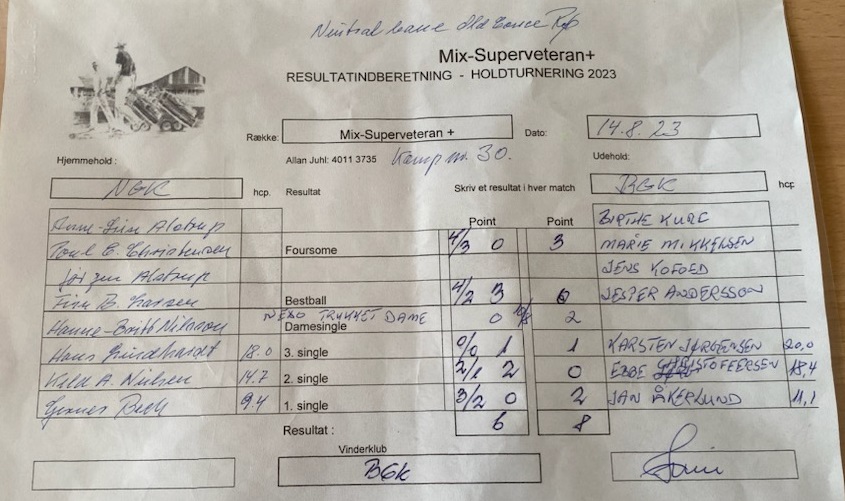 Mix-Superveteran+
RESULTATINDBERETNING - HOLDTURNERING 2023
Række: Mix-Superveteran + Dato: 14.8.23
Hjemmehold: Allan Juhl: 4011 3735 Kamp nr. 30. Udehold:
NGK hcp. Resultat Skriv et resultat i hver match BGK hcp
Point Point BIRTHE KURE
Poul E. Christensen Foursome 4/3 0 3 MARIE MIKKELSEN
Jørgen Alstrup JENS KOFOED
Finn B. Larsen Bestball 4/2 3 0 JESPER ANDERSSON
NEXØ TRUKKET DAME
Hanne-Britt Nilsson Damesingle 0 10/8 2
Hans Lindhardt 18.0 3. single 0/0 1 1 KARSTEN JØRGENSEN 20,0
Keld A. Nielsen 14.7 2. single 2/1 2 0 EBBE CHRISTOFFERSEN 18,4
Bech 9.4 1. single 3/2 0 2 JAN ÅKERLUND 11,1
Resultat : 6 8
Vinderklub
BGK